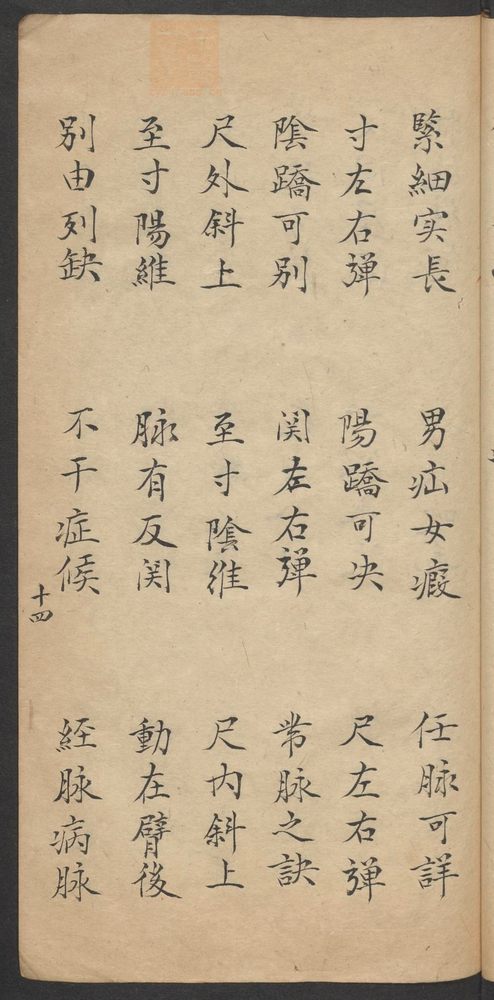 緊細实長 男疝女瘕 任脉可詳
寸左右弹 陽蹻可决 尺左右弹
陰蹻可別 関左右弹 帯脉之訣
尺外斜上 至寸陰維 尺内斜上
至寸陽維 脉有反関 動在臂後
别由列缺 不干症候 经脉病脉
十四